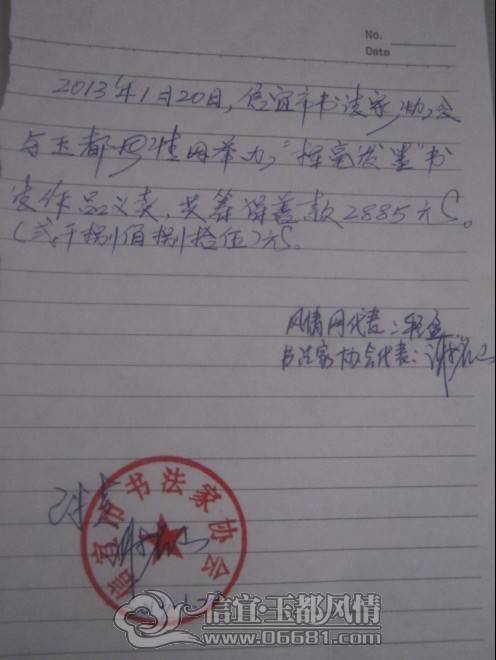 No.
Date
2013年1月20日，信宜市书法家协会
与玉都风情网举办"挥毫发墨"书
法作品义卖，共筹得善款2885元。
（贰仟捌佰捌拾伍）元。
风情网代表：
书法家协会代表：
信宜市书法家协会
信宜·玉都风情
www.06681.com